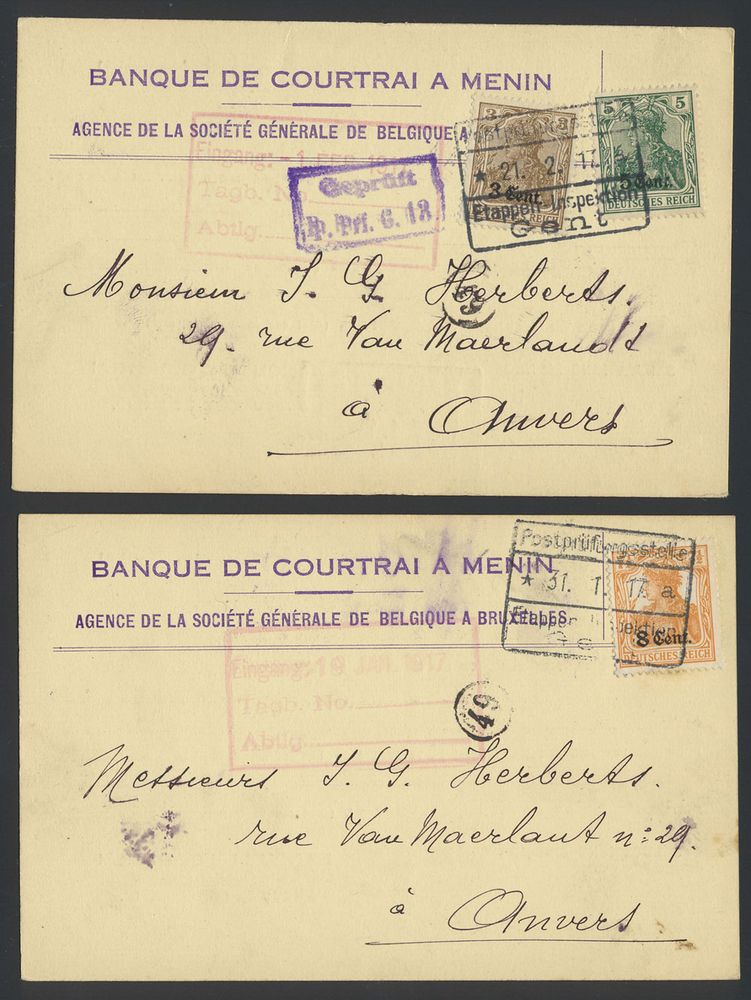 BANQUE DE COURTRAI A MENIN
AGENCE DE LA SOCIÉTÉ GÉNÉRALE DE BELGIQUE A
Eingang: - 1 FEB
Tagb. No
Abtlg.
Geprüft
P. Prf. G. 13
3 3
3 Cent.
REICH
5 5
5 Cent.
DEUTSCHES REICH
* 21. 2. 17.
Etappen-Inspektion
Gent
Monsieur J. G. Herberts.
29. rue Van Maerlandt
à Anvers
BANQUE DE COURTRAI A MENIN
AGENCE DE LA SOCIÉTÉ GÉNÉRALE DE BELGIQUE A BRUXELLES
Postprüfungsstelle
* 31. 1. 17. a
8 Cent.
DEUTSCHES REICH
Eingang: 19 JAN 1917
Tagb. No.
Abtlg
49
Messieurs J. G. Herberts.
rue Van Maerlant nº 29.
à Anvers